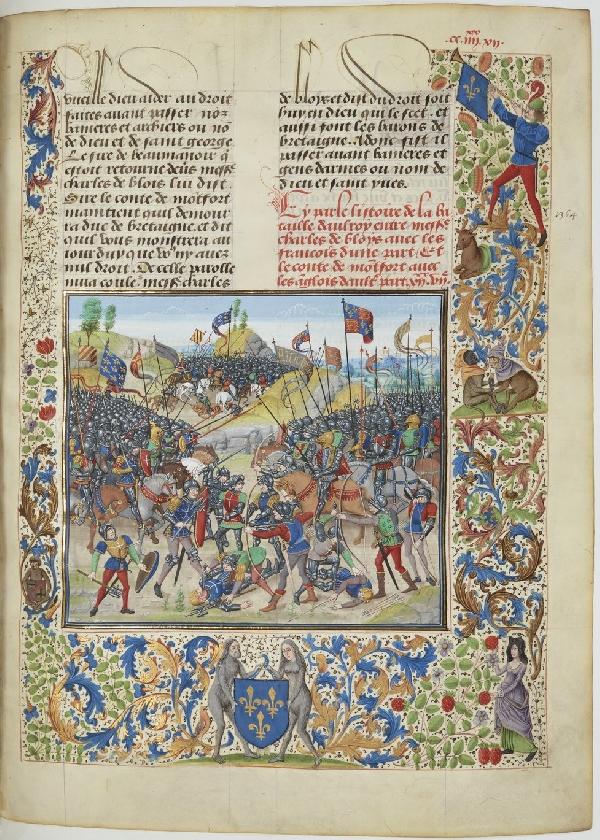 vueille dieu aider au droit
faites auant passer noz
banieres et archiers ou nō
de dieu et de saint george
Le sire de beaumanoir q̄
estoit retourne deuƨ messᵉ
charles de blois lui dist.
Sire le conte de motfort
maintient quil demour
ra duc de bretaigne. et dit
quil vous monstrera au
iour duy que vo⁹ ny auez
nul droit. De celle parolle
mua coule² messᵉ charles
de bloys et dist du droit soit
huy en dieu qui le scet. et
aussi font les barons de
bretaigne. Adonc fist il
passer auant banieres et
gens darmes ou nom de
dieu et saint yues.
Cy parle listoire de la ba
taille daulroy entre messᵉ
charles de bloys auec les
francois dune part. Et
le conte de motfort auec
les aglois daultᵉ part.
1364